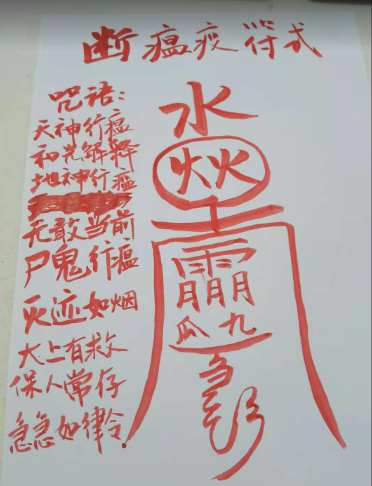 断瘟疫符式
咒语:
天神行瘟
和光解释
地神行瘟
无敢当前
尸鬼行瘟
灭迹如烟
太上有救
保人常存
急急如律令!
水
火火
工
雨
月月月
瓜九